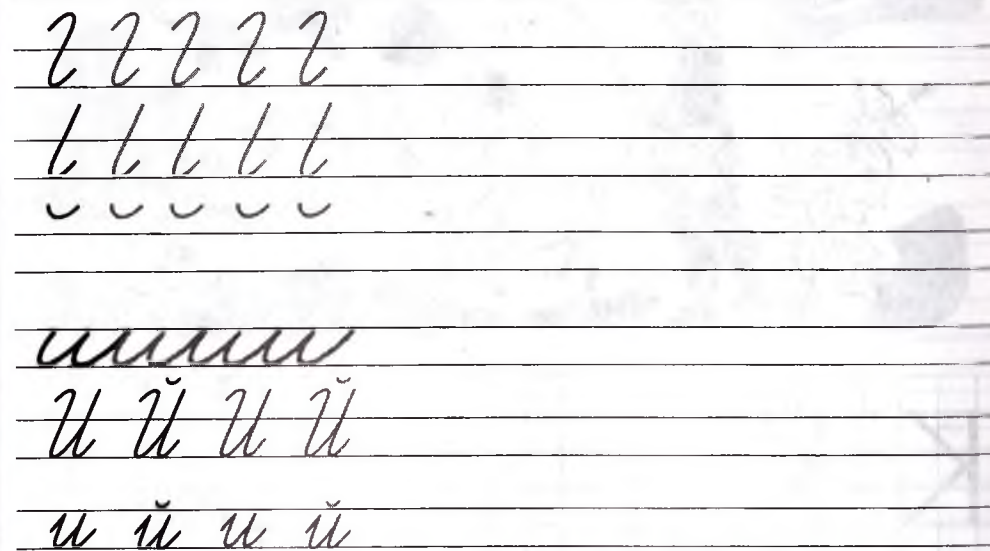 И Й И Й
и й и й